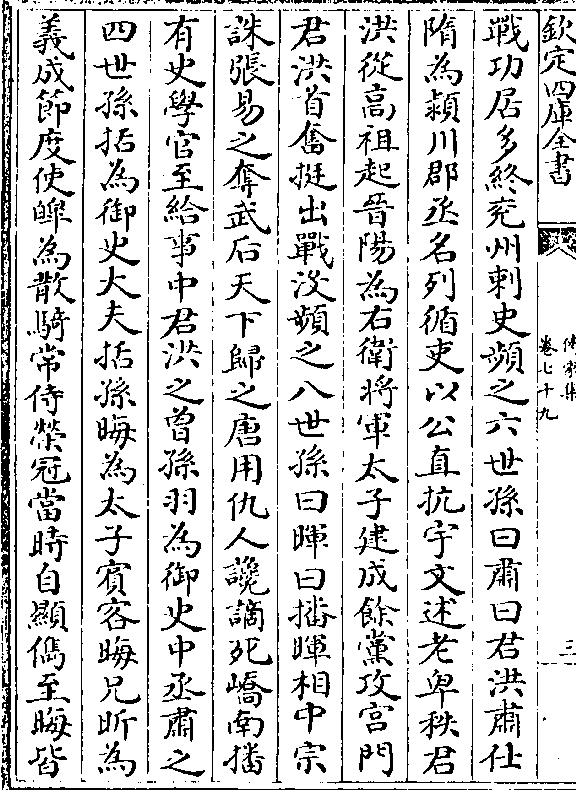 欽定四庫全書
傳家集
卷七十九
三
戰功居多終兖州刺史頻之六世孫曰肅曰君洪肅仕
隋為潁川郡丞名列循吏以公直抗宇文述老卑秩君
洪從高祖起晉陽為右衛將軍太子建成餘黨攻宫門
君洪首奮挺出戰沒頻之八世孫曰暉曰播暉相中宗
誅張易之奪武后天下歸之唐用仇人讒謫死嶠南播
有史學官至給事中君洪之曾孫羽為御史中丞肅之
四世孫括為御史大夫括孫晦為太子賓客晦兄昕為
義成節度使皥為散騎常侍榮冠當時自顯儁至晦皆